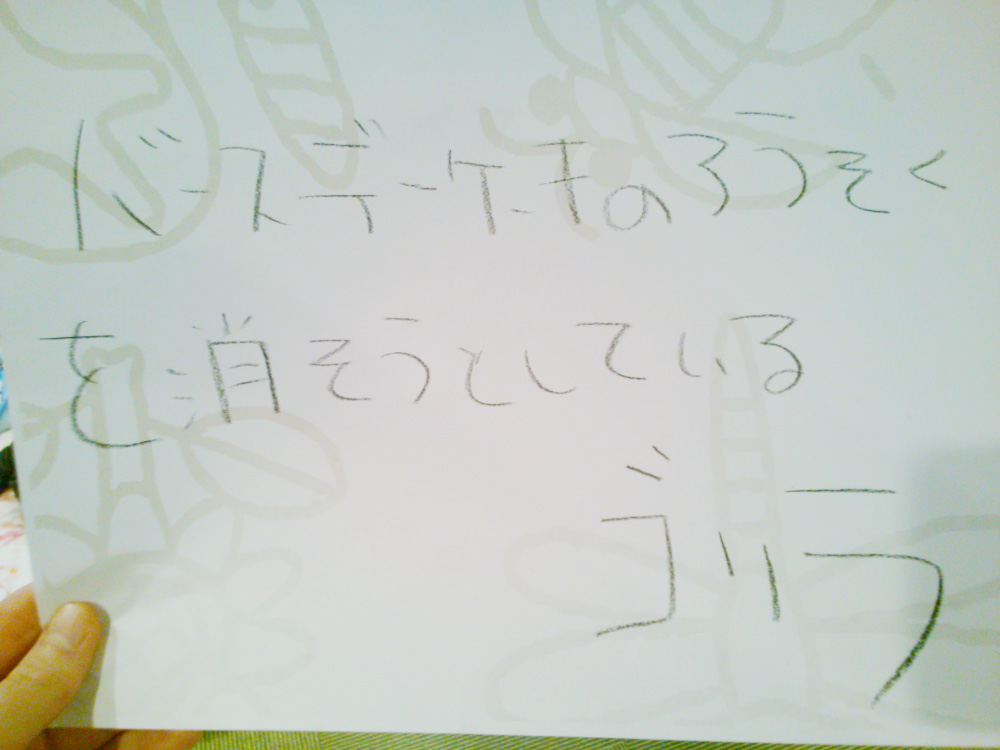 バースデーケーキのろうそく
を消そうとしている
ゴリラ